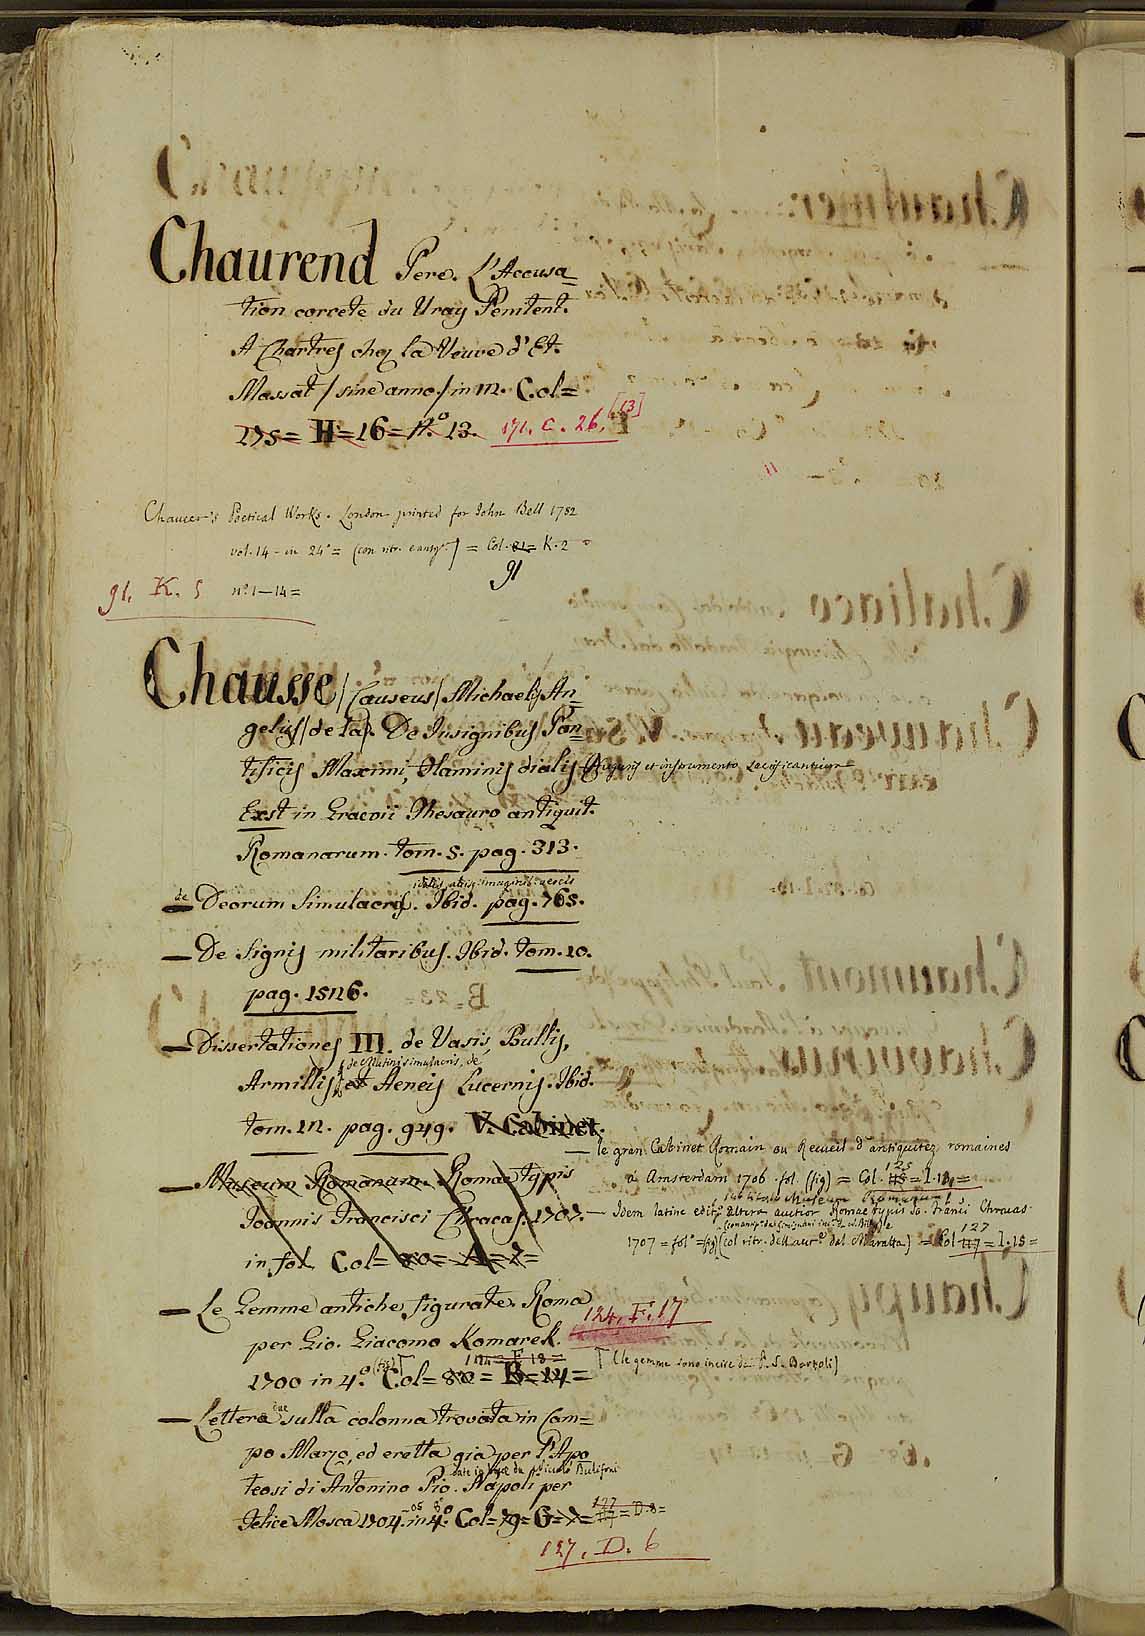 Chaurend Pere. L'Accusa=
tion correte du Vray Penitent.
A Chartres chez la Veuve d'Et.
Massat / sine anno / in 12. Col=
175 = H = 16 = N.º 13. 171. C. 26. [13]
Chaucer's Poetical Works. London printed for John Bell 1782
vol. 14 - in 24º = = Col. 81 = K. 2
91
91. K. 5 nº 1—14 =
Chausse / Causeus / Michaelis An=
gelus / de la /. De Insignibus Pon=
tificis Maximi, Flaminis dialis Auguris et instrumento sacrificantium
Exst in Graevii Thesauro antiquit.
Romanarum. tom. 5. pag. 313.
— de Deorum Simulacris. Ibid. pag. 765.
— De Signis militaribus. Ibid. tom. 10.
pag. 1526.
— Dissertationes III. de Vasis, Bullis,
de Mutini simulacris, de
Armillis et Aeneis Lucernis. Ibid.
tom. 12. pag. 949. V. Cabinet.
— le gran Cabinet Romain ou Recueil d'antiquitez romaines
à Amsterdam 1706 fol. (fig) = Col. 125 = I. 12 =
— Museum Romanum. Romae typis
Joannis Francisci Chracas. 1707.
in fol. Col=
— Idem latine edit. altera auctior Romae typis Jo. Franci Chracas
1707 = folº = fig (col ritr. dell'autº. del Maratta) = Col 127 = I. 15 =
— Le Gemme antiche figurate. Roma
124. F. 17
per Gio. Giacomo Komarek.
1700 in 4.º (fig) Col= 80 = B = 14 =
124 = F 18 =
(le gemme sono incise da P. S. Bartoli)
— Lettera sulla colonna trovata in Cam=
po Marzo, ed eretta già per l'Apo
teosi di Antonino Pio. Napoli per
Felice Mosca 1704. in 4º. Col= 79 = G = 7 = 127 = D. 8 =
127. D. 6